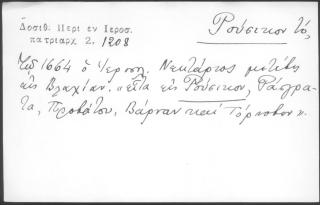 Δοσιθ. Περι εν Ιεροσ.
πατριαρχ 2. 1208
Ρούσικον τό,
Τῷ 1664 ὁ Ἱεροσ. Νεκτάριος μετέβη
εἰς Βλαχίαν. «εἶτα εἰς Ρούσικον, Ράσγρα-
τα, Προβάτου, Βάρναν καί Τόρνοβον».